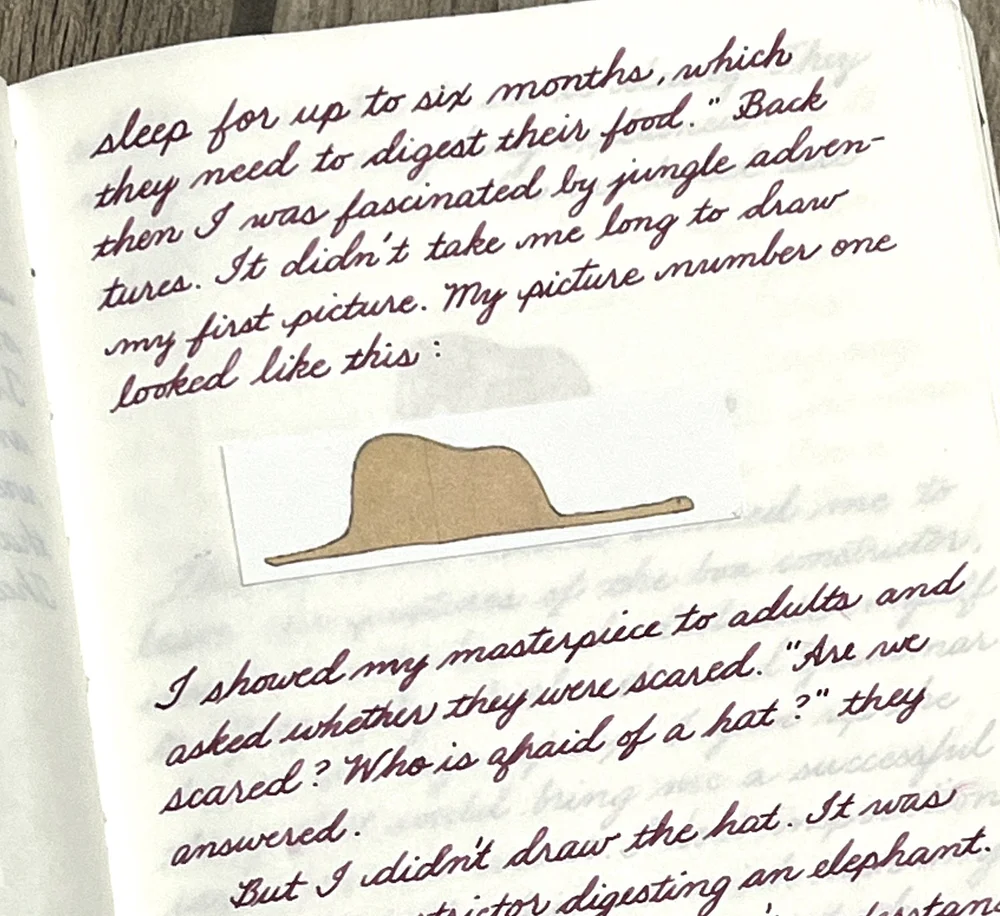 sleep for up to six months, which
they need to digest their food." Back
then I was fascinated by jungle adven-
tures. It didn't take me long to draw
my first picture. My picture number one
looked like this:
I showed my masterpiece to adults and
asked whether they were scared. "Are we
scared? Who is afraid of a hat?" they
answered.
But I didn't draw the hat. It was
digesting an elephant.